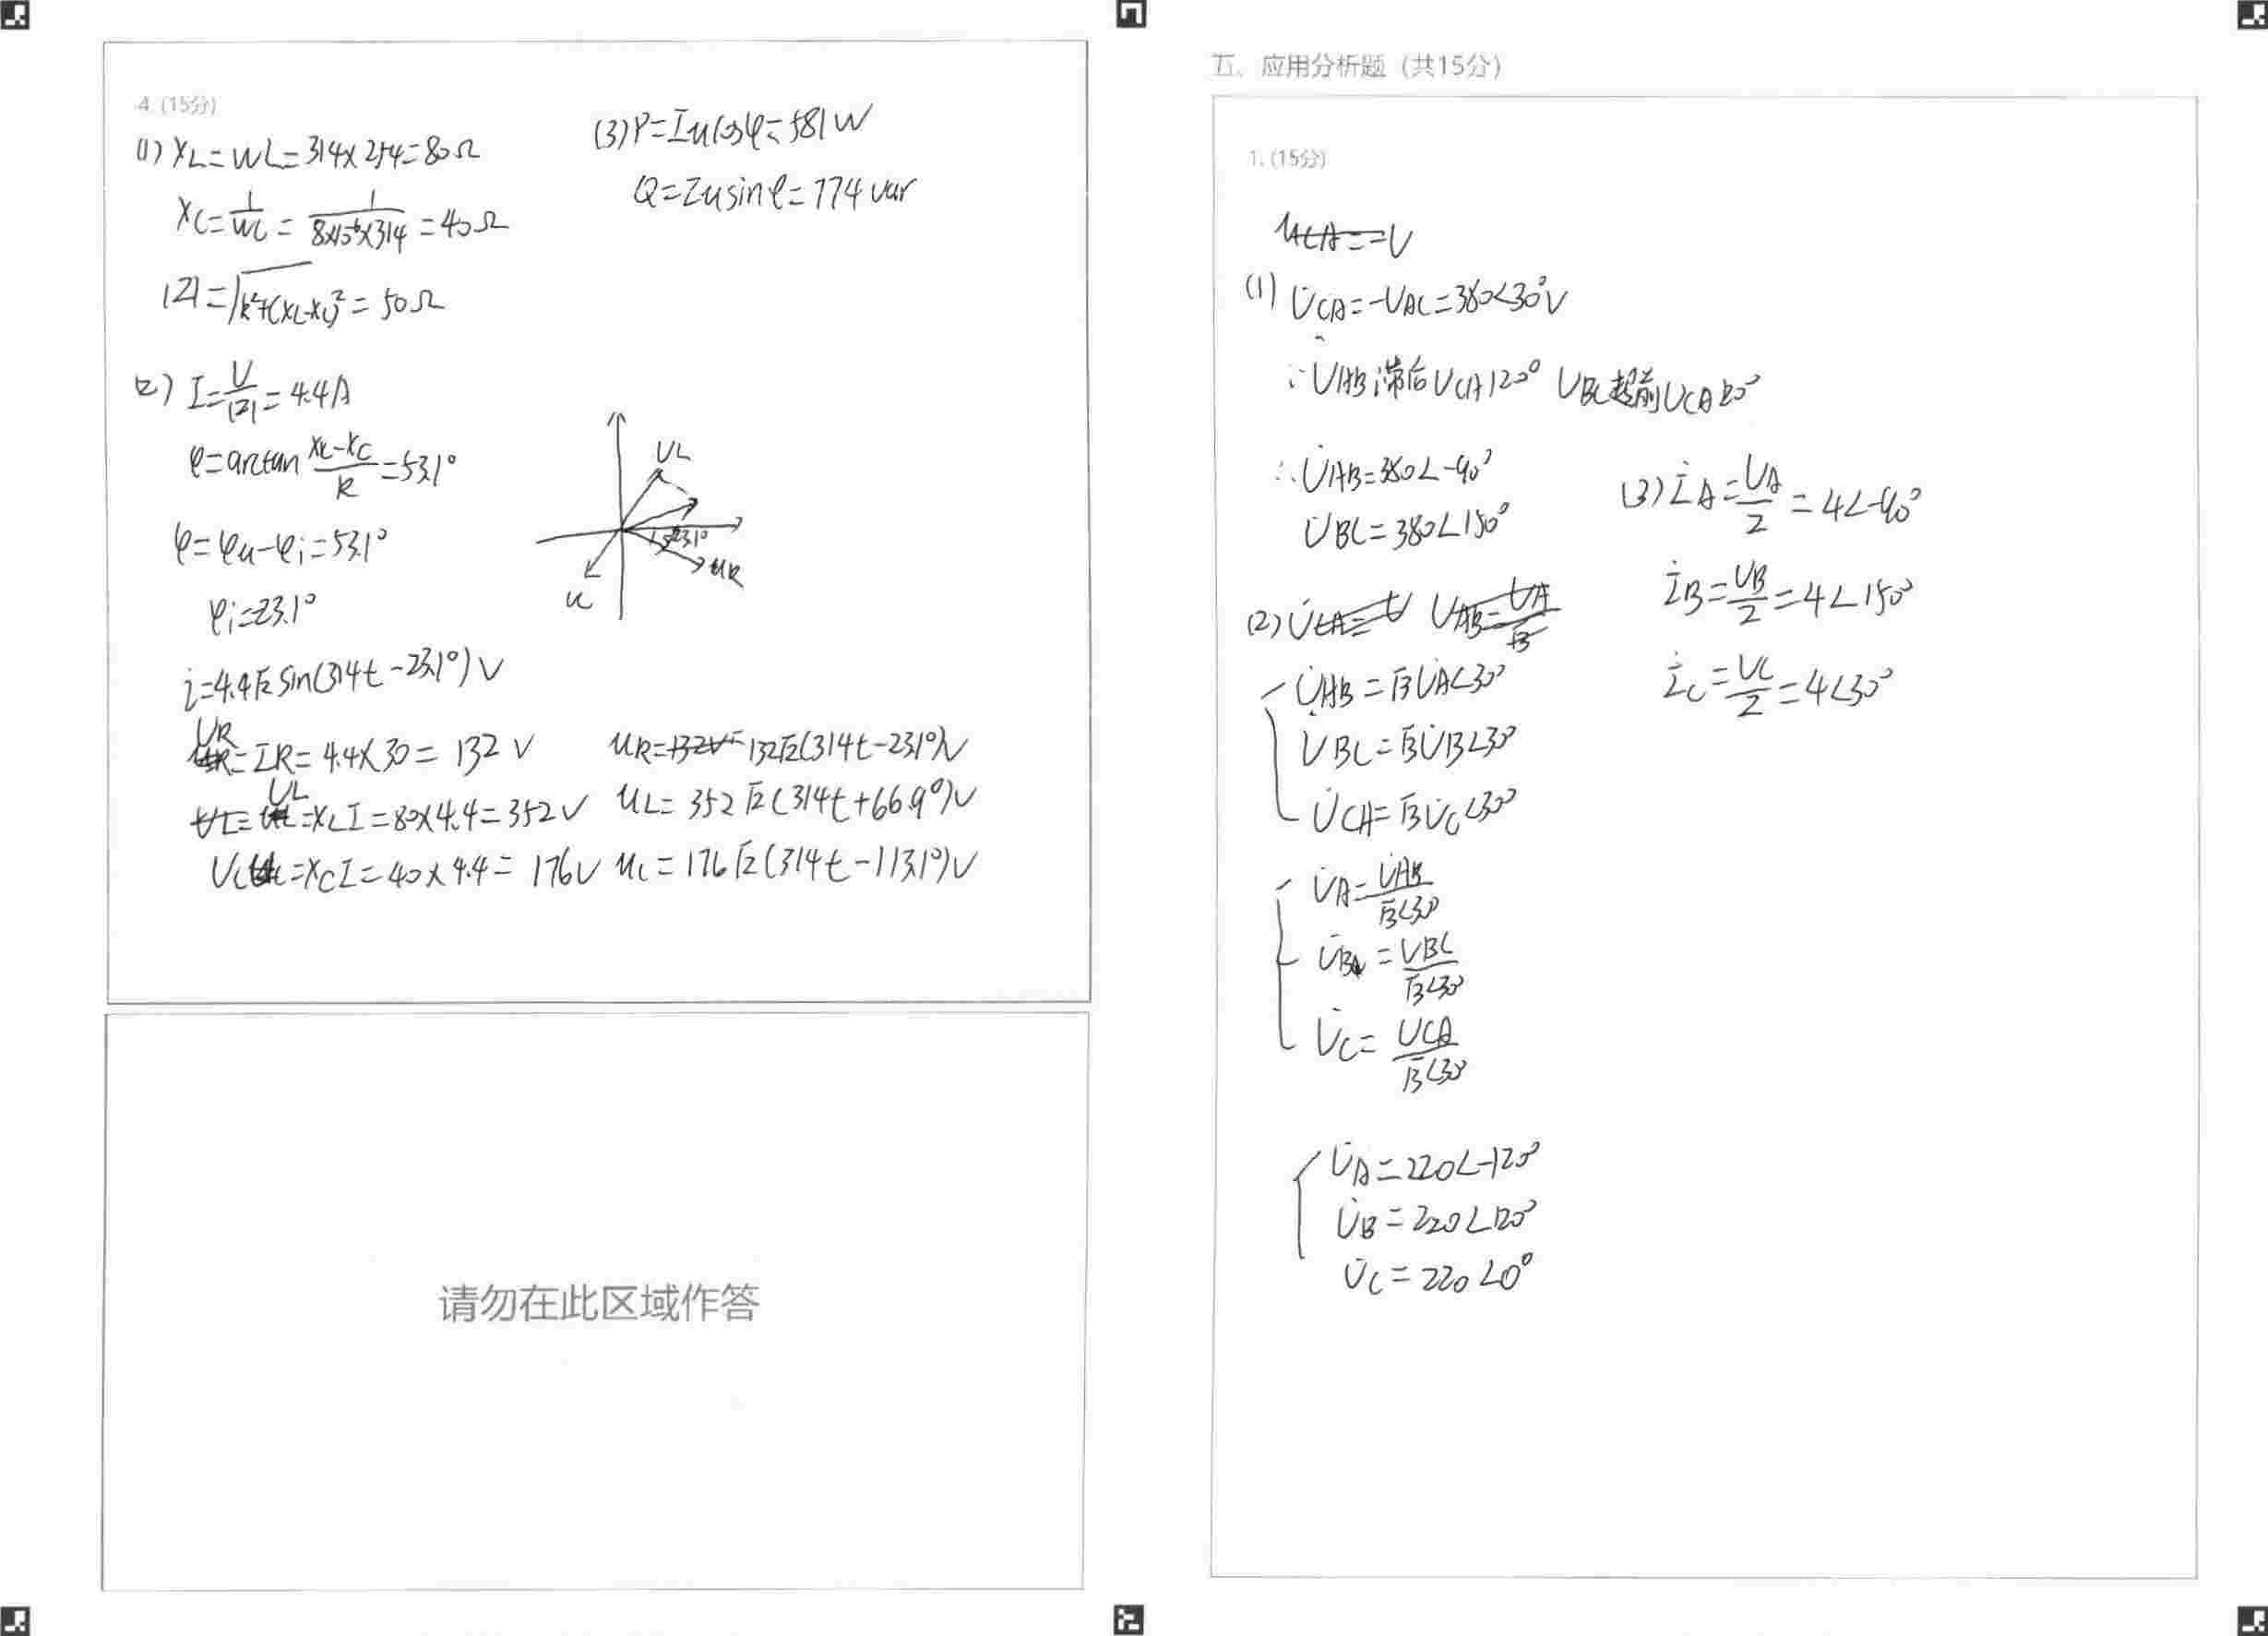 4. (15分)
(1) XL=WL=314×254=80Ω
XC=1/WC=1/8×10⁻⁶×314=40Ω
|Z|=√R²+(XL-XC)²=50Ω
(2) I=U/|Z|=4.4A
φ=arctan XL-XC/R=53.1°
φ=φu-φi=53.1°
φi=23.1°
i=4.4√2sin(314t-23.1°)V
UR=IR=4.4×30=132V
uR=132√2(314t-23.1°)V
UL=XLI=80×4.4=352V
uL=352√2(314t+66.9°)V
UC=XCI=40×4.4=176V
uC=176√2(314t-113.1°)V
UL
23.1°
uR
u
(3)P=IUcosφ=581W
Q=IUsinφ=774var
请勿在此区域作答
五、应用分析题（共15分）
1. (15分)
(1) U̇CA=-UAC=380∠30°V
∵U̇AB滞后UCA120° UBC超前UCA120°
∴U̇AB=380∠-90°
U̇BC=380∠150°
(2)
U̇AB=√3U̇A∠30°
U̇BC=√3U̇B∠30°
U̇CA=√3U̇C∠30°
U̇A=U̇AB/√3∠30°
U̇B=UBC/√3∠30°
U̇C=UCA/√3∠30°
U̇A=220∠-120°
U̇B=220∠120°
U̇C=220∠0°
(3)İA=UA/Z=4∠-90°
İB=UB/Z=4∠150°
İC=UC/Z=4∠30°